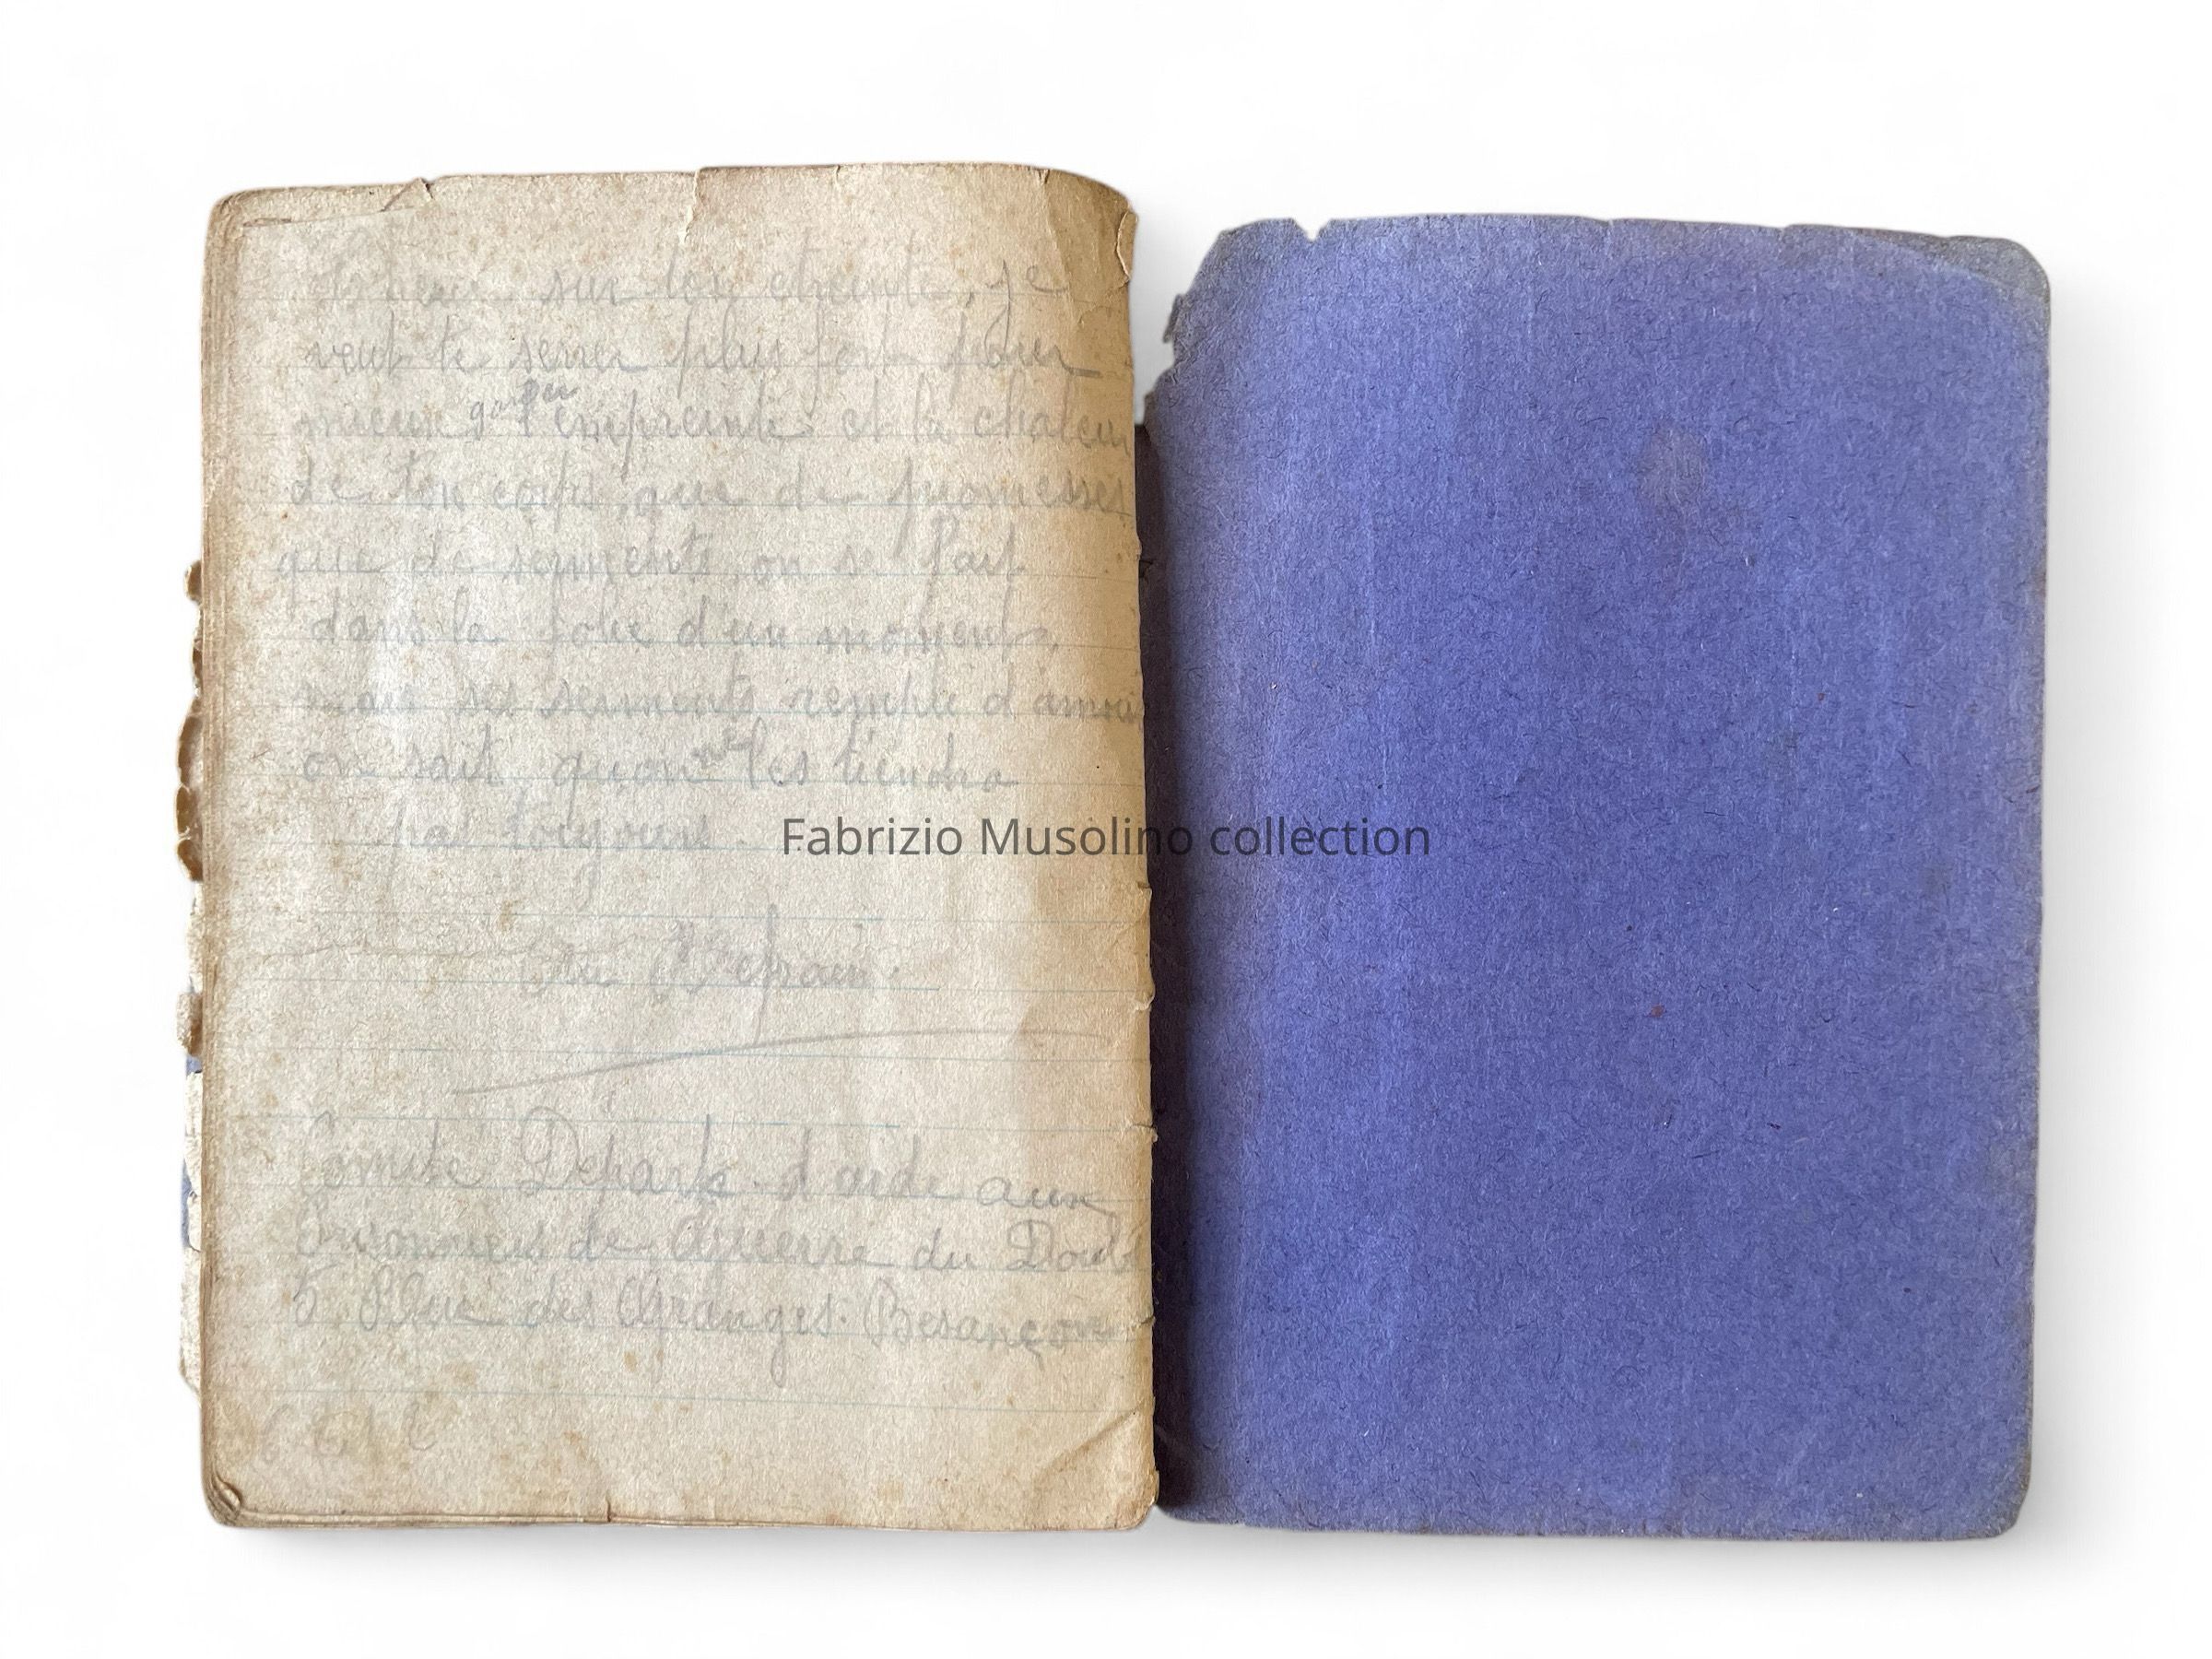 sur ton etreinte, je
veut te serrer plus fort pour
mieux garder l'empreinte et la chaleur
de ton corps, que de promesses
que de serments on se fait
dans la folie d'un moment,
mais ses serments remplie d'amour
on sait quon ne les tiendra
pas toujours.
au Refrain.
Comite Départ. d'aide aux
Prisonniers de Guerre du Doubs
5 Rue des Granges. Besançon
Fabrizio Musolino collection